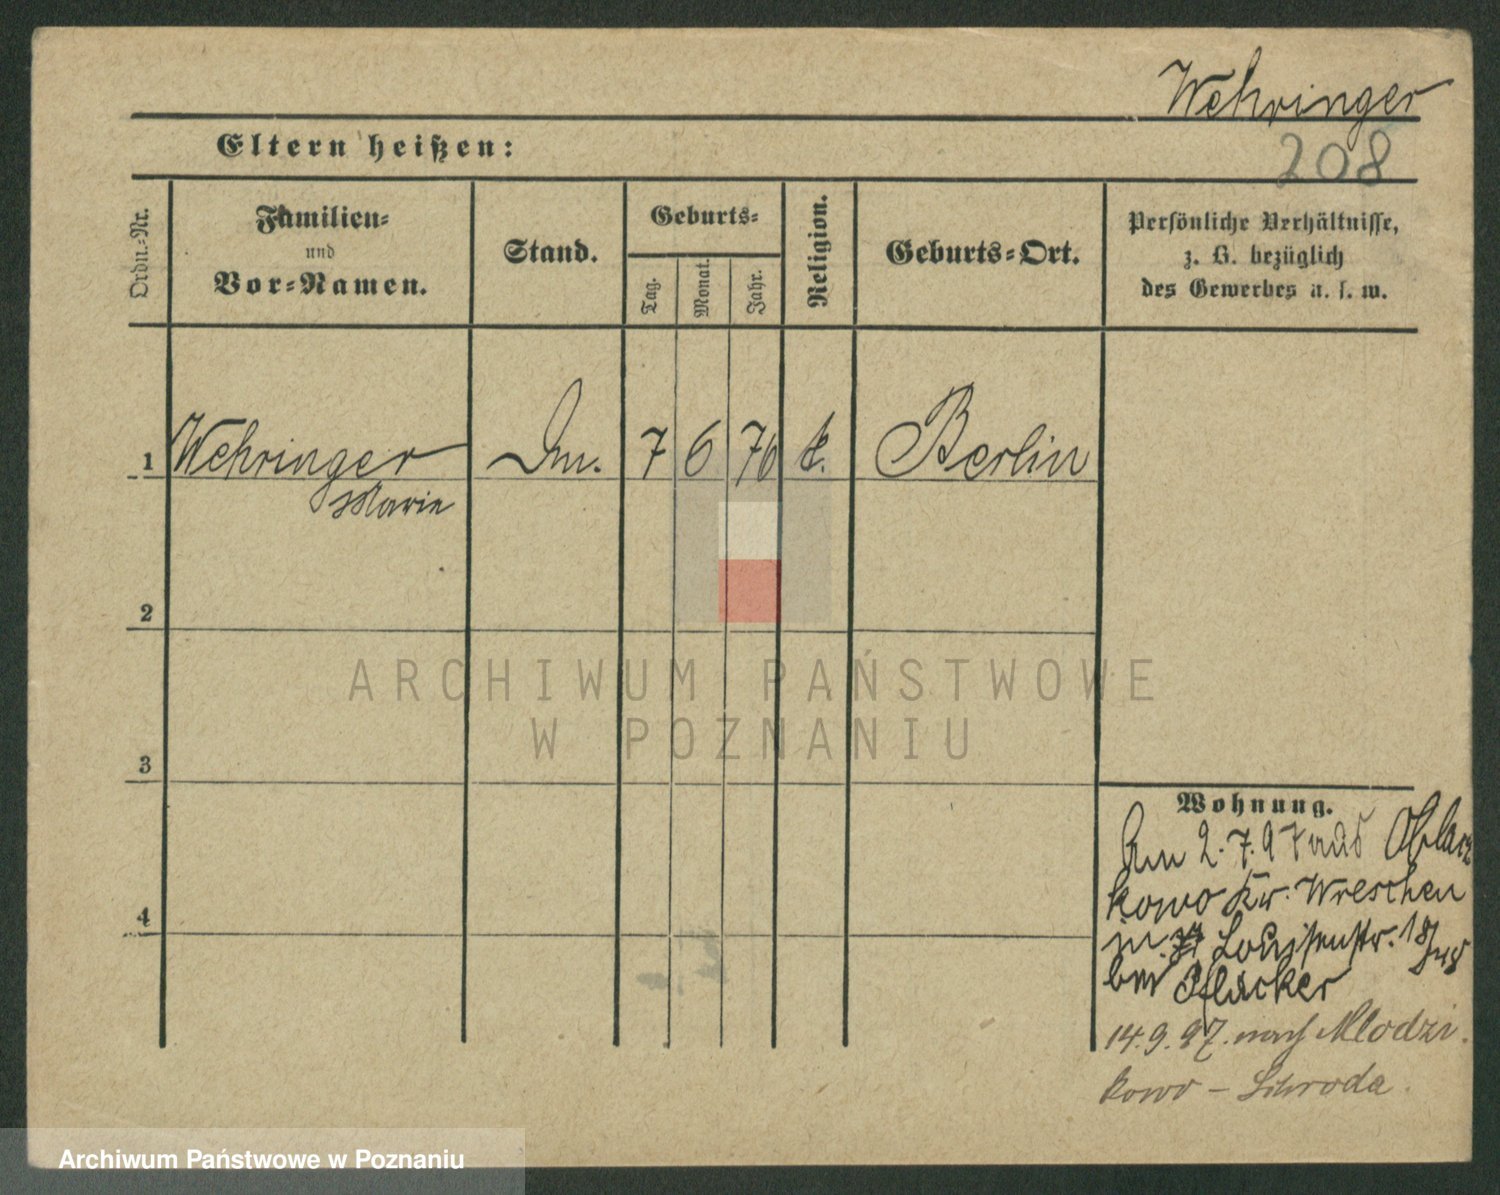 Wehringer
208
Eltern heißen:
Ordn.-Nr.
Familien-
und
Vor-Namen.
Stand.
Geburts-
Tag.
Monat.
Jahr.
Religion.
Geburts-Ort.
Persönliche Verhältnisse,
z. B. bezüglich
des Gewerbes u. s. w.
1 Wehringer 7 6 76 k. Berlin
Marie
2
3
4
ARCHIWUM PAŃSTWOWE
W POZNANIU
Wohnung.
Am 2.7.97 aus Oblacz
kowo Kr. Wreschen
in Louisenstr. 18
bei Pflacker
14.9.97. nach Mlodzi
kowo - Schroda.
Archiwum Państwowe w Poznaniu